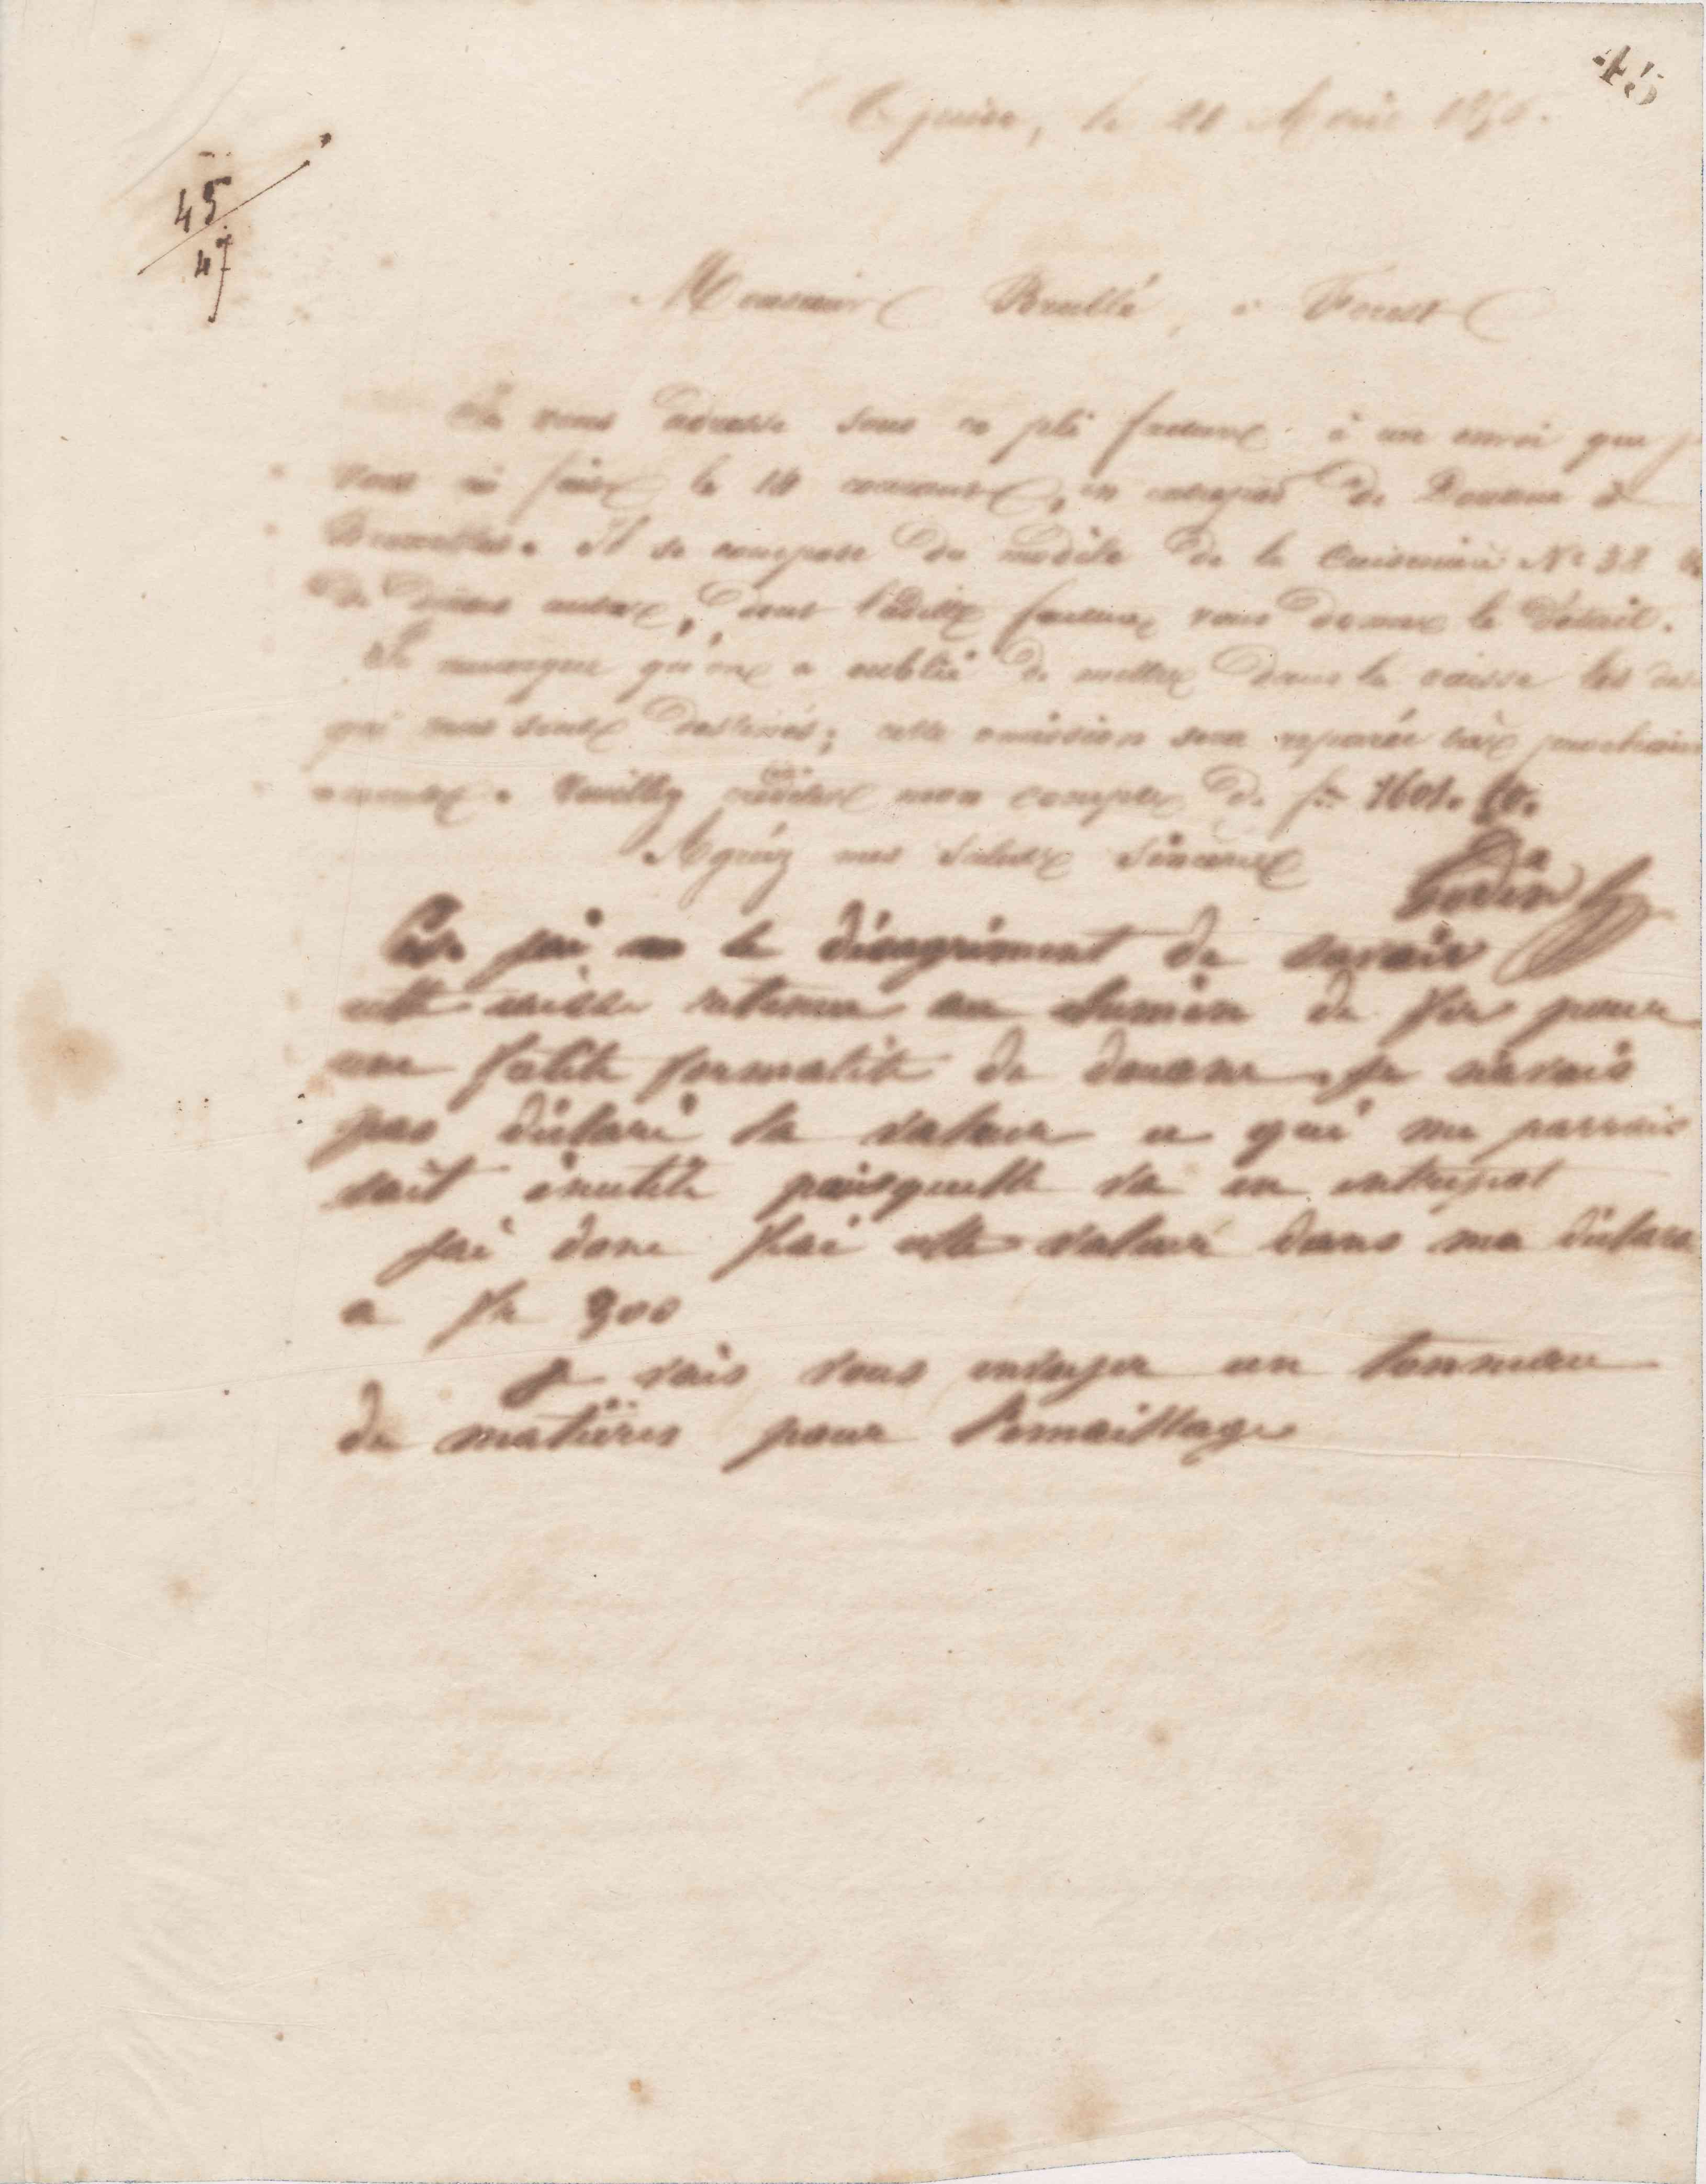 45
45
47
le 21 Avril 185
Monsieur Brullé, à Forest
Je vous adresse sous ce pli facture à un envoi que j
vous ai fait le 10 courant, en entrepôt de Douane à
Bruxelles. Il se compose du modèle de la Cuisinière No 38
de divers autres, dont ladite facture vous donne le détail.
Je remarque qu'on a oublié de mettre dans la caisse les
qui vous sont destinés; cette omission sera réparée
Veuillez créditer mon compte de fr 1601.
Agréez mes saluts sincères
Godin
j'ai le désagrément de savoir
cette caisse retenue au chemin de fer pour
une petite formalité de douane je n'avais
pas déclaré la valeur ce qui me parrais
sait inutile puisquelle va en entrepot
jai donc fixé cette valeur dans ma déclara
a fr 900
je vais vous envoyer un tonneau
de matières pour l'emaillage